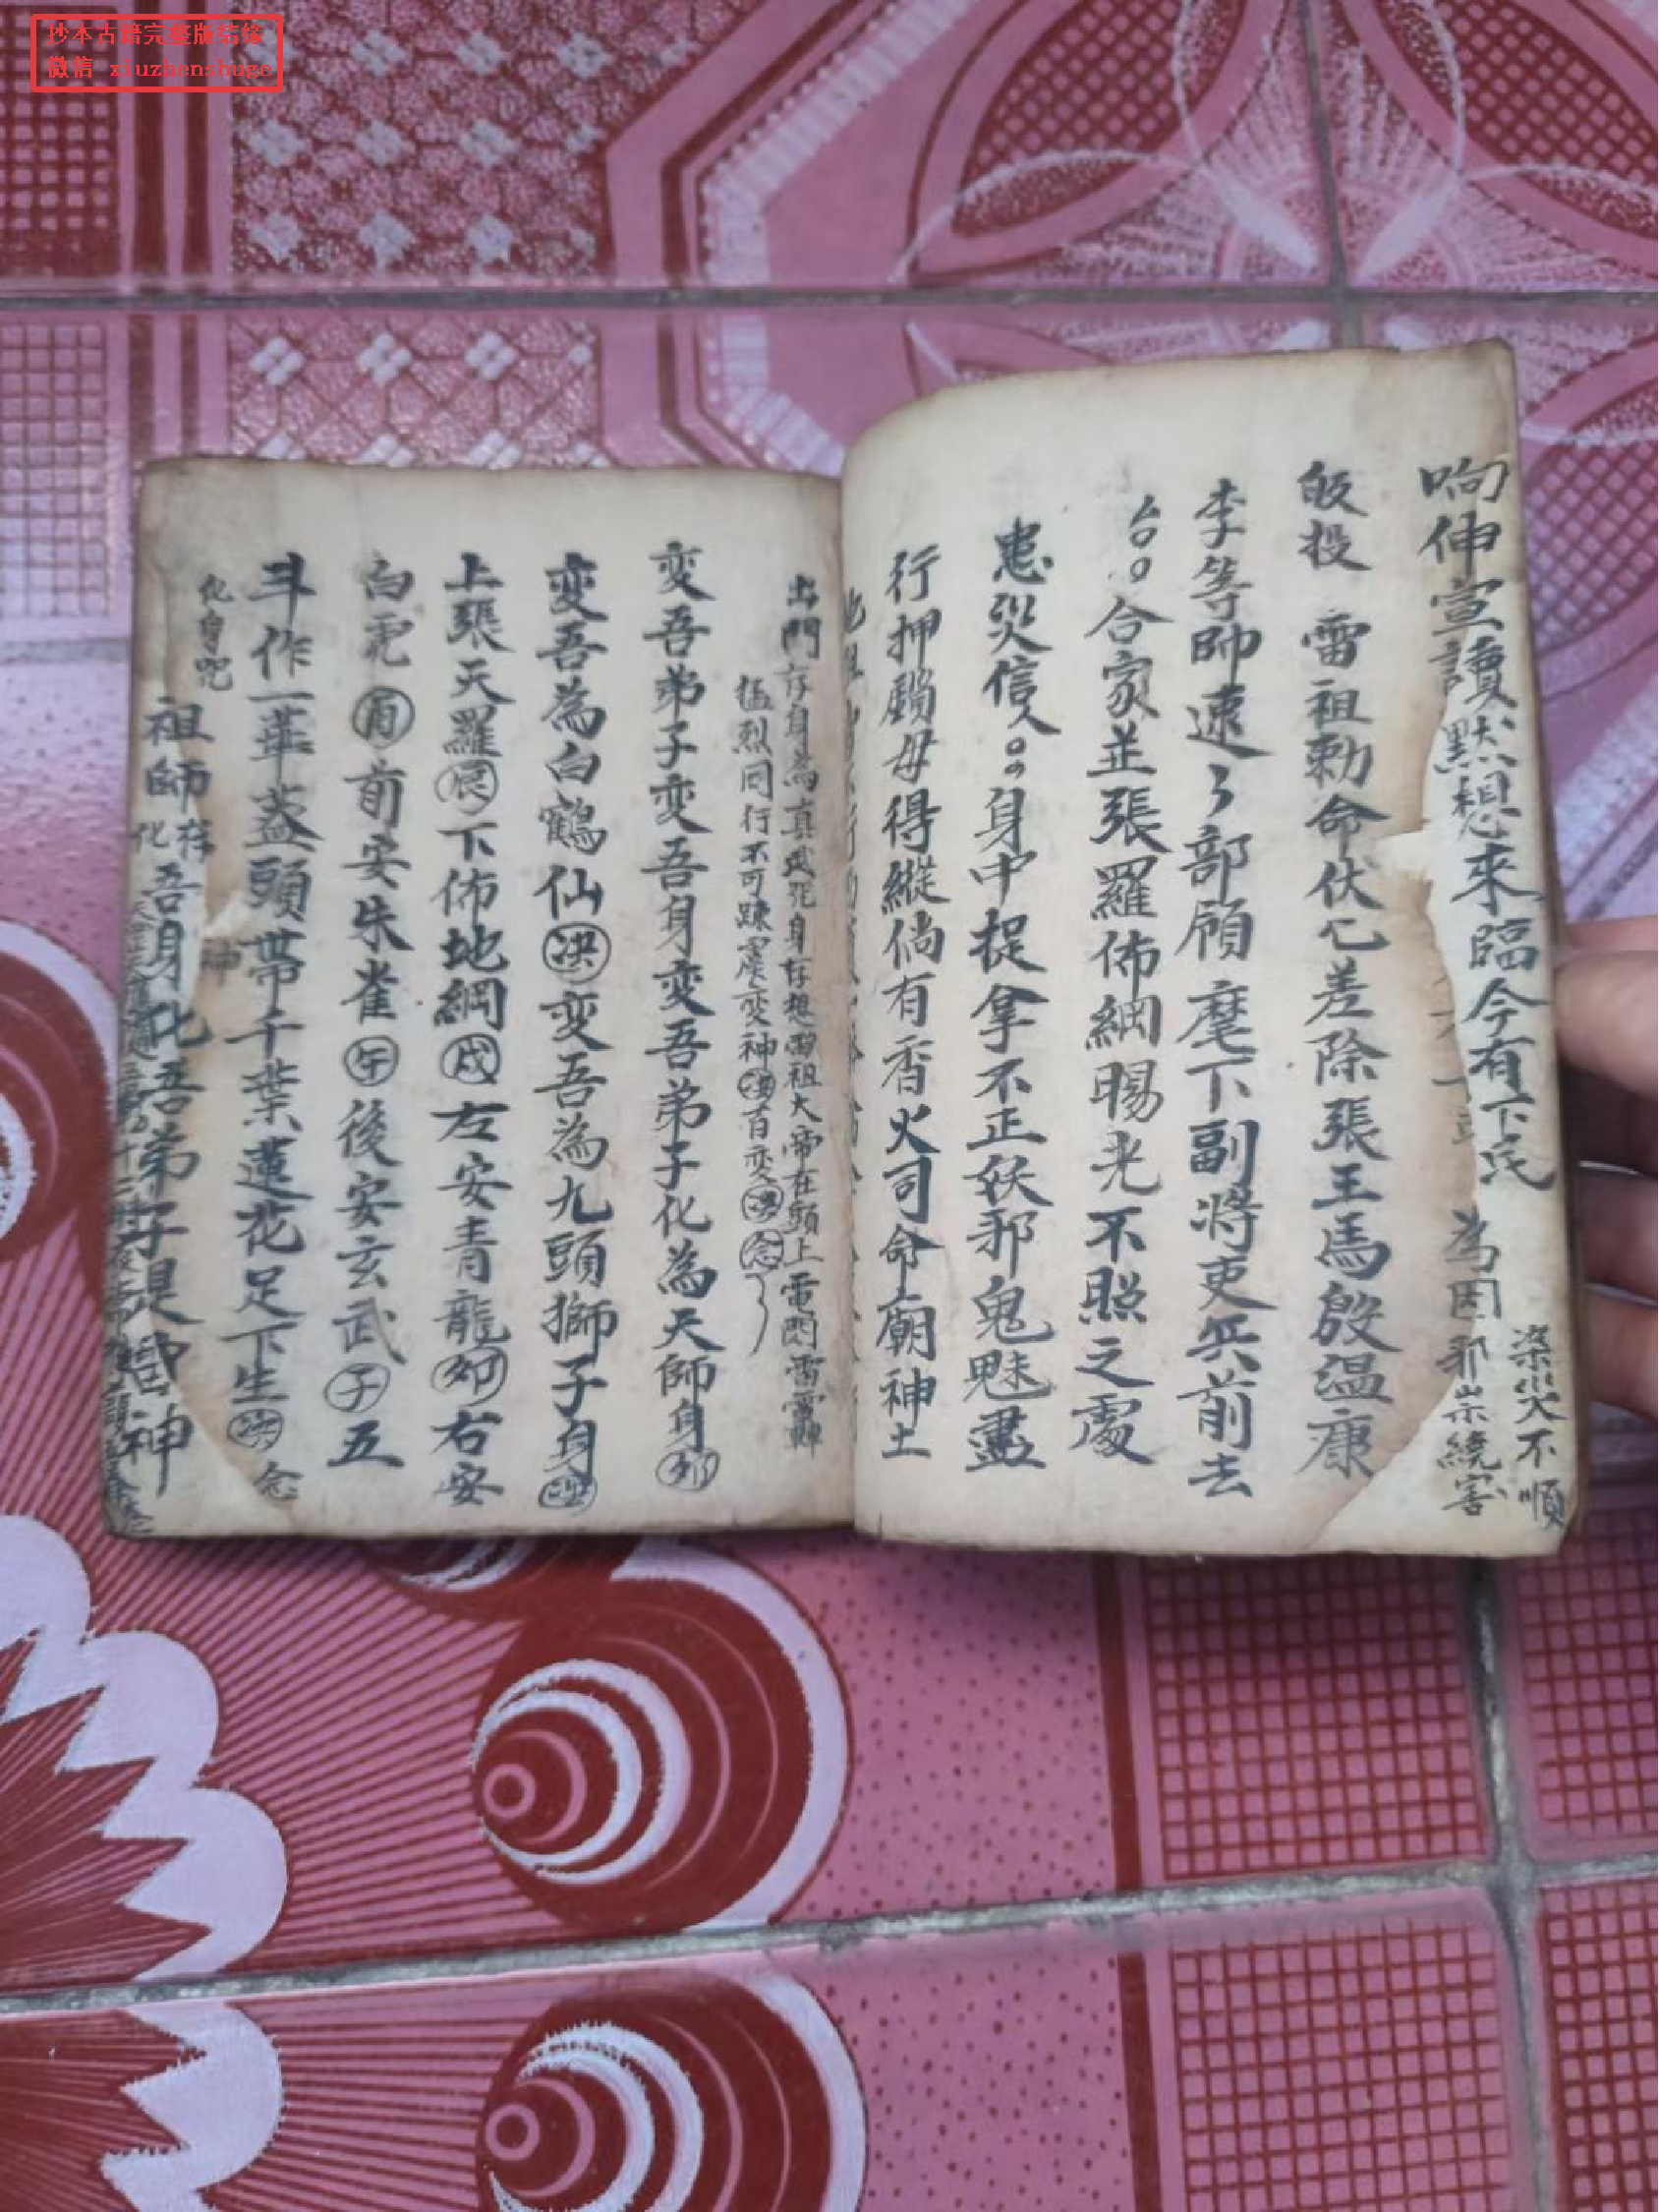 抄本古籍完整版结缘
微信 xiuzhenshuge
响伸宣讀默想來臨今有下民
為因邪祟繞害
染災不順
皈投 雷祖勅命伏乞差除張王馬殷温康
李等帥速々部領麾下副將吏兵前去
合家並張羅佈綱賜光不照之處
患災信人身中捉拿不正妖邪鬼魅盡
行押 毋得縱倘有香火司命廟神土
出門存身為真武 身存想雷祖大帝在頭上電閃雷轟
猛烈同行不可疎 変神 首変 念
変吾弟子変吾身変吾弟子化為天師身卯
変吾為白鶴仙洪変吾為九頭獅子身
上張天羅辰下佈地綱戌左安青龍卯右安
白虎酉前安朱雀午後安玄武子五
斗作一華蓋頭帶千葉蓮花足下生 念
化身咒
祖師存化吾身化吾弟子 神